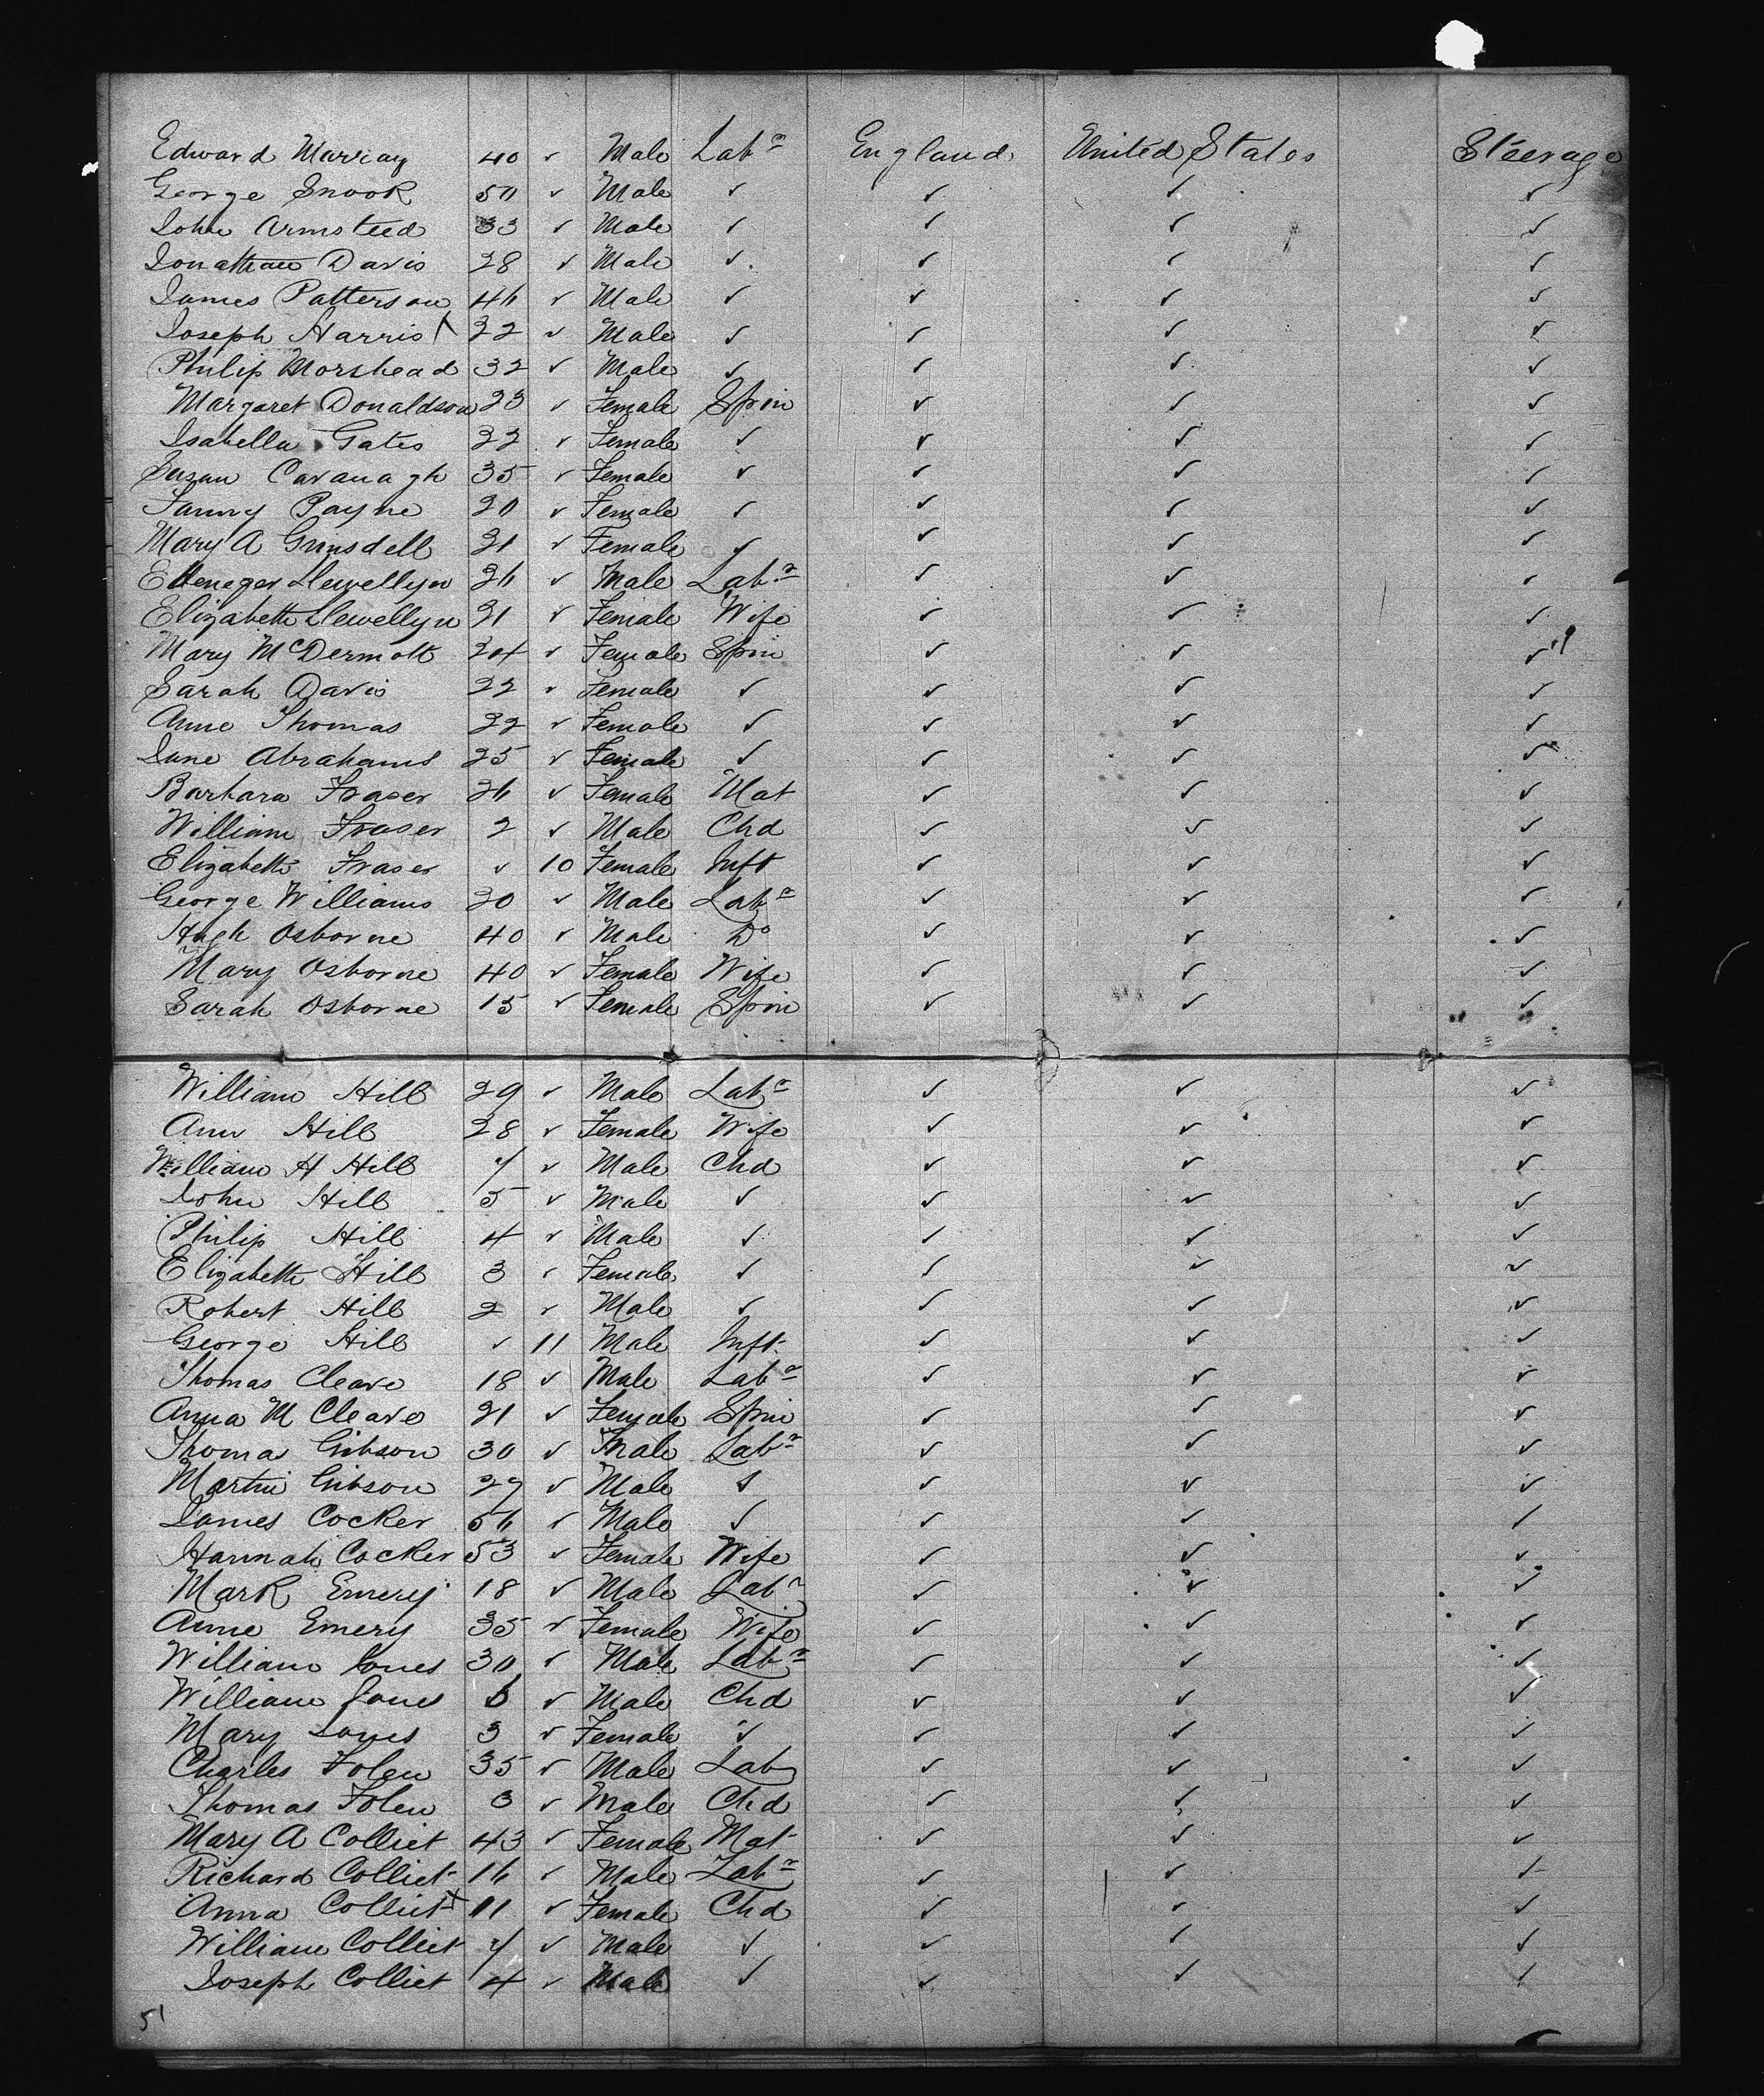 Edward Murray 40 ✓ Male Labr England United States Steerage
George Snook 50 ✓ Male ✓ ✓ ✓ ✓
John Armsteed 33 ✓ Male ✓ ✓ ✓ ✓
Jonathan Davis 28 ✓ Male ✓ ✓ ✓ ✓
James Patterson 46 ✓ Male ✓ ✓ ✓ ✓
Joseph Harris 22 ✓ Male ✓ ✓ ✓ ✓
Philip Morshead 32 ✓ Male ✓ ✓ ✓ ✓
Margaret Donaldson 23 ✓ Female Spin ✓ ✓ ✓
Isabella Gates 22 ✓ Female ✓ ✓ ✓ ✓
Susan Cavanagh 35 ✓ Female ✓ ✓ ✓ ✓
Fanny Payne 20 ✓ Female ✓ ✓ ✓ ✓
Mary A Grinsdell 21 ✓ Female ✓ ✓ ✓ ✓
Ebenezer Llewellyn 26 ✓ Male Labr ✓ ✓ ✓
Elizabeth Llewellyn 21 ✓ Female Wife ✓ ✓ ✓
Mary McDermott 24 ✓ Female Spin ✓ ✓ ✓
Sarah Davis 22 ✓ Female ✓ ✓ ✓ ✓
Anne Thomas 22 ✓ Female ✓ ✓ ✓ ✓
Jane Abrahams 25 ✓ Female ✓ ✓ ✓ ✓
Barbara Fraser 26 ✓ Female Mat ✓ ✓ ✓
William Fraser 2 ✓ Male Chd ✓ ✓ ✓
Elizabeth Fraser ✓ 10 Female Inft ✓ ✓ ✓
George Williams 20 ✓ Male Labr ✓ ✓ ✓
Hugh Osborne 40 ✓ Male Do ✓ ✓ ✓
Mary Osborne 40 ✓ Female Wife ✓ ✓ ✓
Sarah Osborne 15 ✓ Female Spin ✓ ✓ ✓
William Hill 29 ✓ Male Labr ✓ ✓ ✓
Ann Hill 28 ✓ Female Wife ✓ ✓ ✓
William H Hill 7 ✓ Male Chd ✓ ✓ ✓
John Hill 5 ✓ Male ✓ ✓ ✓ ✓
Philip Hill 4 ✓ Male ✓ ✓ ✓ ✓
Elizabeth Hill 3 ✓ Female ✓ ✓ ✓ ✓
Robert Hill 2 ✓ Male ✓ ✓ ✓ ✓
George Hill ✓ 11 Male Inft ✓ ✓ ✓
Thomas Cleave 18 ✓ Male Labr ✓ ✓ ✓
Anna M Cleave 21 ✓ Female Spin ✓ ✓ ✓
Thomas Gibson 30 ✓ Male Labr ✓ ✓ ✓
Martin Gibson 27 ✓ Male ✓ ✓ ✓ ✓
James Cocker 56 ✓ Male ✓ ✓ ✓ ✓
Hannah Cocker 53 ✓ Female Wife ✓ ✓ ✓
Mark Emery 18 ✓ Male Labr ✓ ✓ ✓
Anne Emery 35 ✓ Female Wife ✓ ✓ ✓
William Jones 30 ✓ Male Labr ✓ ✓ ✓
William Jones 6 ✓ Male Chd ✓ ✓ ✓
Mary Jones 3 ✓ Female ✓ ✓ ✓ ✓
Charles Folen 35 ✓ Male Lab ✓ ✓ ✓
Thomas Folen 3 ✓ Male Chd ✓ ✓ ✓
Mary A Colliet 43 ✓ Female Mat ✓ ✓ ✓
Richard Colliet 16 ✓ Male Labr ✓ ✓ ✓
Anna Colliet 11 ✓ Female Chd ✓ ✓ ✓
William Colliet 7 ✓ Male ✓ ✓ ✓ ✓
Joseph Colliet 4 ✓ Male ✓ ✓ ✓ ✓
51